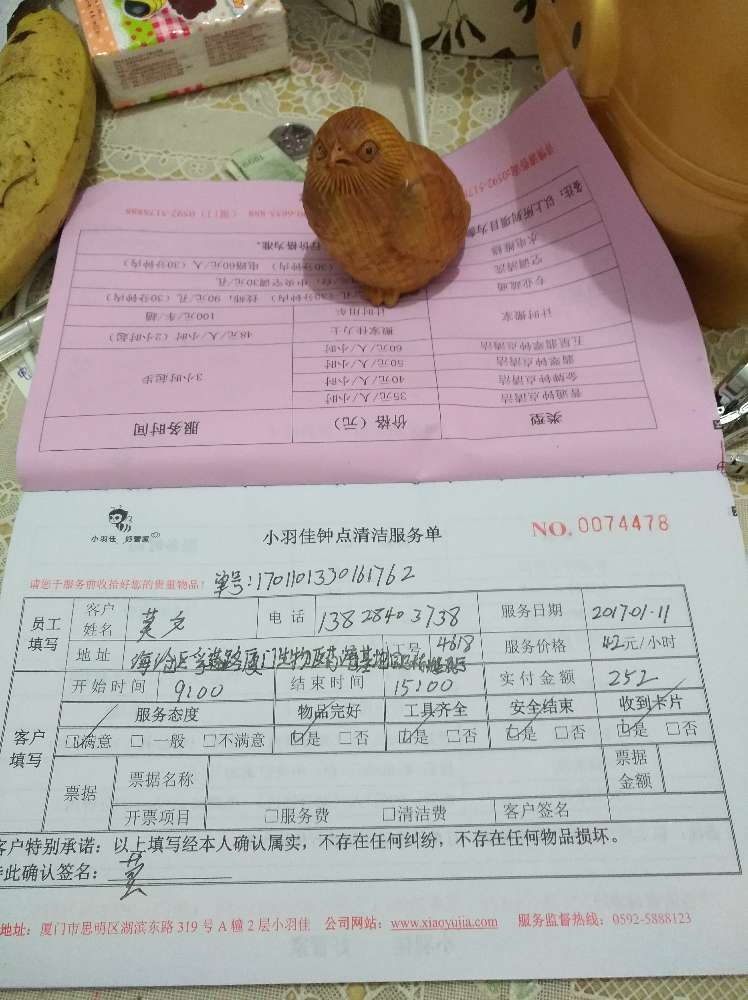 类型 价格（元） 服务时间
普通钟点清洁 35元/人/小时 3小时起步
金牌钟点清洁 40元/人/小时
翡翠钟点清洁 50元/人/小时
五星翡翠钟点清洁 60元/人/小时
计时搬家 搬家佐力士 48元/人/小时（2小时起）
计时用车 100元/车/趟
专业疏通 90元/孔（30分钟内）
空调清洗 中央空调30元/孔
水电维修 （30分钟内） 电路60元/人（30分钟内）
备注：以上所列项目为
行价格为准。
0592-5178888
小羽佳 好管家
小羽佳钟点清洁服务单
NO. 0074478
请您于服务前收拾好您的贵重物品！ 单号:1701101330161762
员工填写
客户姓名 电话 13828403738 服务日期 2017.01.11
地址 工号 4618 服务价格 42元/小时
开始时间 9:00 结束时间 15:00 实付金额 252
客户填写
服务态度 物品完好 工具齐全 安全结束 收到卡片
☑满意 □一般 □不满意 ☑是 □否 ☑是 □否 ☑是 □否 ☑是 □否
票据 票据名称 票据金额
开票项目 □服务费 □清洁费 客户签名
客户特别承诺：以上填写经本人确认属实，不存在任何纠纷，不存在任何物品损坏。
特此确认签名：
地址：厦门市思明区湖滨东路 319 号 A 幢 2 层小羽佳 公司网站：www.xiaoyujia.com 服务监督热线：0592-5888123